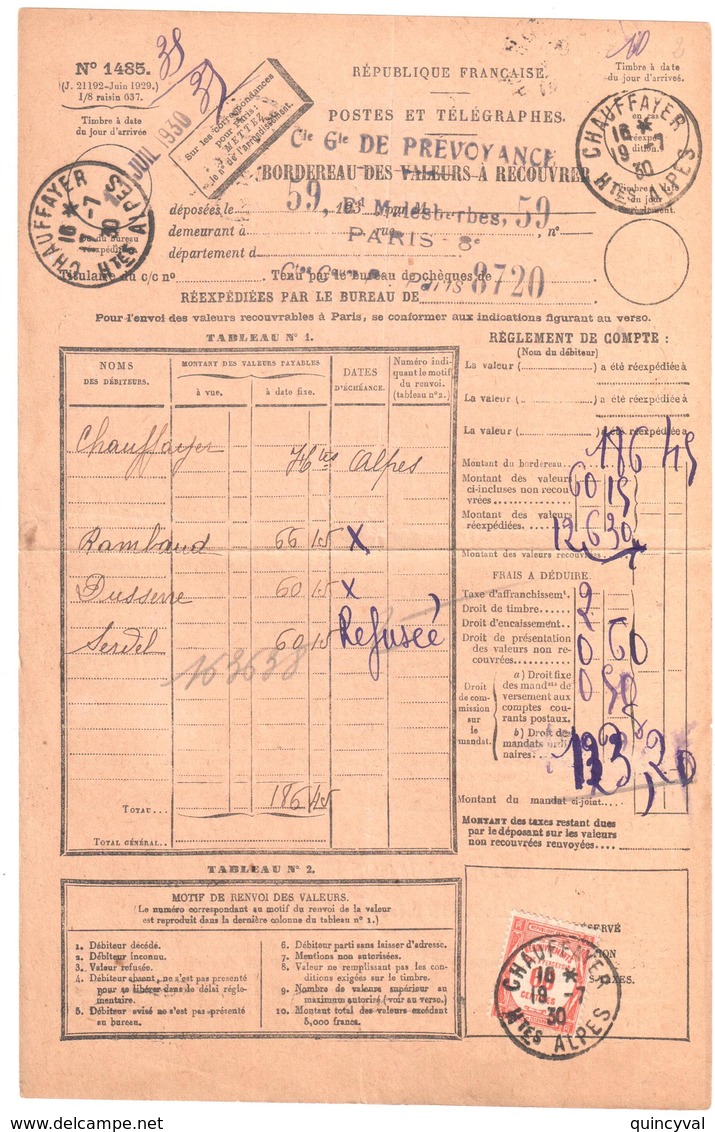 Nº 1485.
(J. 21192-Juin 1929.)
1/8 raisin 637.
Timbre à date
du jour d'arrivée
JUIL 1930
Sur les correspondances
pour Paris:
METTEZ
le nº de l'arrondissement.
RÉPUBLIQUE FRANÇAISE.
POSTES ET TÉLÉGRAPHES.
Timbre à date
du jour d'arrivée.
CHAUFFAYER
16 *
19 -7
30
Htes ALPES
Cie Gle DE PREVOYANCE
BORDEREAU DES VALEURS À RECOUVRER
CHAUFFAYER
16 *
-7
30
Htes ALPES
déposées le
59, Bd Malesherbes, 59
demeurant à rue nº
PARIS 8e
département d
Titulaire du c/c nº Tenu par le bureau de chèques de
Paris 8720
RÉEXPÉDIÉES PAR LE BUREAU DE
Timbre à date
du jour du
règlement.
Pour l'envoi des valeurs recouvrables à Paris, se conformer aux indications figurant au verso.
TABLEAU Nº 1.
NOMS
DES DÉBITEURS.
MONTANT DES VALEURS PAYABLES
à vue.
à date fixe.
DATES
D'ÉCHÉANCE.
Numéro indi-
quant le motif
du renvoi.
(tableau nº 2.)
Chauffayer Htes Alpes
Rambaud 66 15 x
Dusserre 60 15 x
Serdel 60 15 Refusée
163638
TOTAU 186 45
TOTAL GÉNÉRAL
RÈGLEMENT DE COMPTE :
(Nom du débiteur)
La valeur ( ) a été réexpédiée à
La valeur ( ) a été réexpédiée à
La valeur ( ) a été réexpédiée à
Montant du bordereau 186 45
Montant des valeurs
ci-incluses non recou-
vrées 60 15
Montant des valeurs
réexpédiées 126 30
Montant des valeurs recouvrées
FRAIS A DÉDUIRE.
Taxe d'affranchissemt. 2
Droit de timbre
Droit d'encaissement
Droit de présentation
des valeurs non re-
couvrées 0 60
Droit
de com-
mission
sur
le
mandat.
a) Droit fixe
des mandats de
versement aux
comptes cou-
rants postaux. 0 50
b) Droit des
mandats ordi-
naires
123,20
Montant du mandat ci-joint
MONTANT des taxes restant dues
par le déposant sur les valeurs
non recouvrées renvoyées
TABLEAU Nº 2.
MOTIF DE RENVOI DES VALEURS.
(Le numéro correspondant au motif du renvoi de la valeur
est reproduit dans la dernière colonne du tableau nº 1.)
1. Débiteur décédé.
2. Débiteur inconnu.
3. Valeur refusée.
4. Débiteur absent, ne s'est pas présenté
pour se libérer dans de délai régle-
mentaire.
5. Débiteur avisé ne s'est pas présenté
au bureau.
6. Débiteur parti sans laisser d'adresse.
7. Mentions non autorisées.
8. Valeur ne remplissant pas les con-
ditions exigées sur le timbre.
9. Nombre de valeurs supérieur au
maximum autorisé. (voir au verso.)
10. Montant total des valeurs excédant
5,000 francs.
CHAUFFAYER
16 *
19 -7
30
Htes ALPES
quincyval